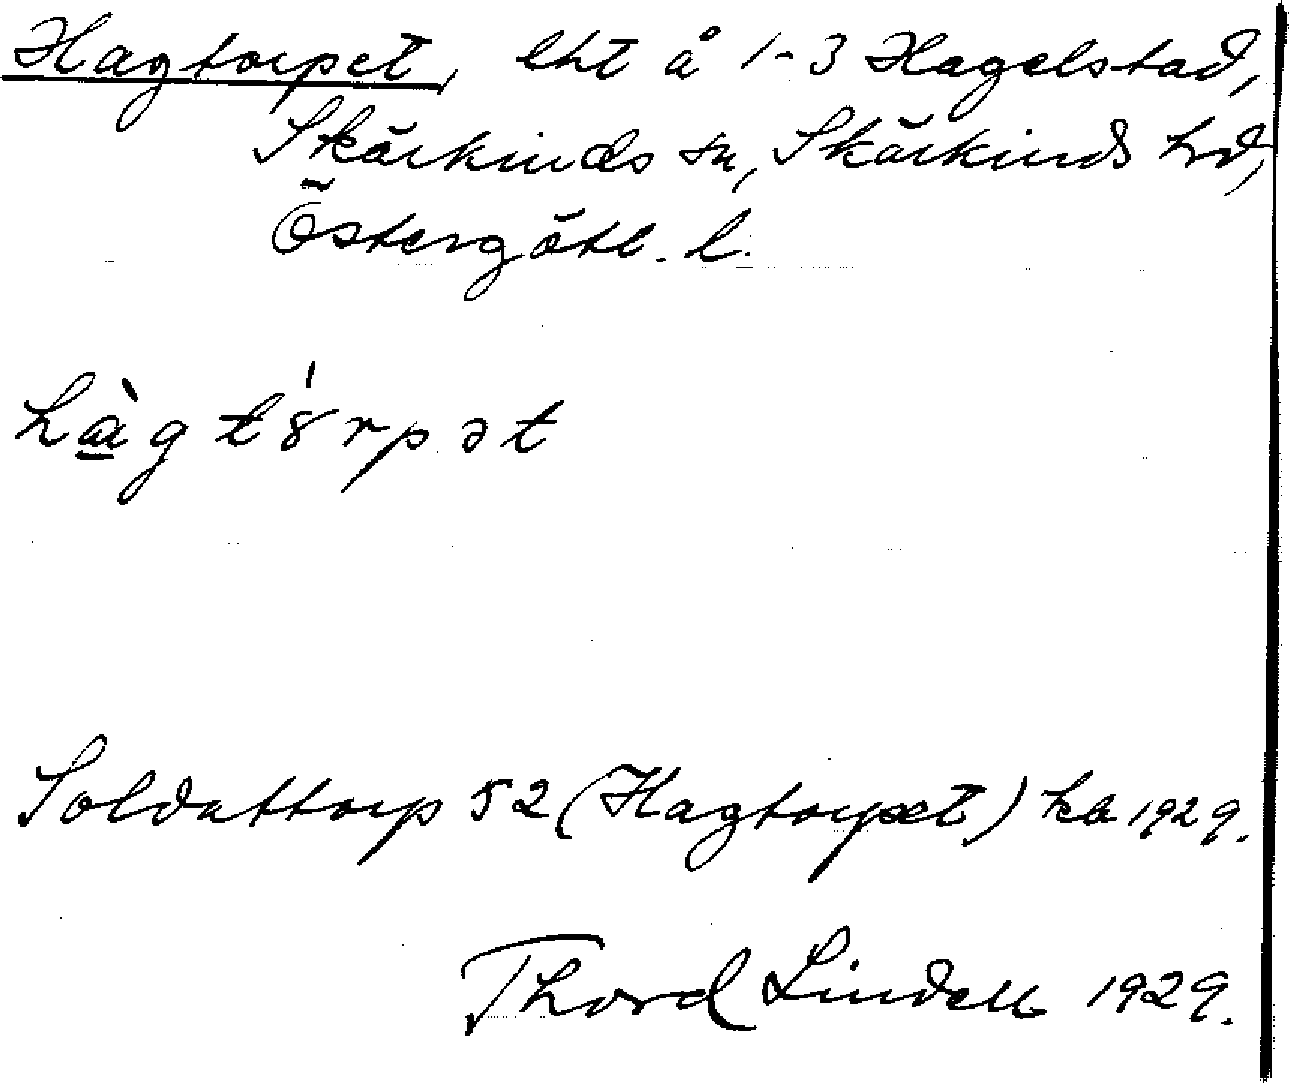 Hagtorpet, lht å 1-3 Hagelstad,
Skärkinds sn, Skärkinds hd,
Östergötl. l.
hàgtórpət
Soldattorp 52 (Hagtorpet) kb 1929.
Thord Lindell 1929.